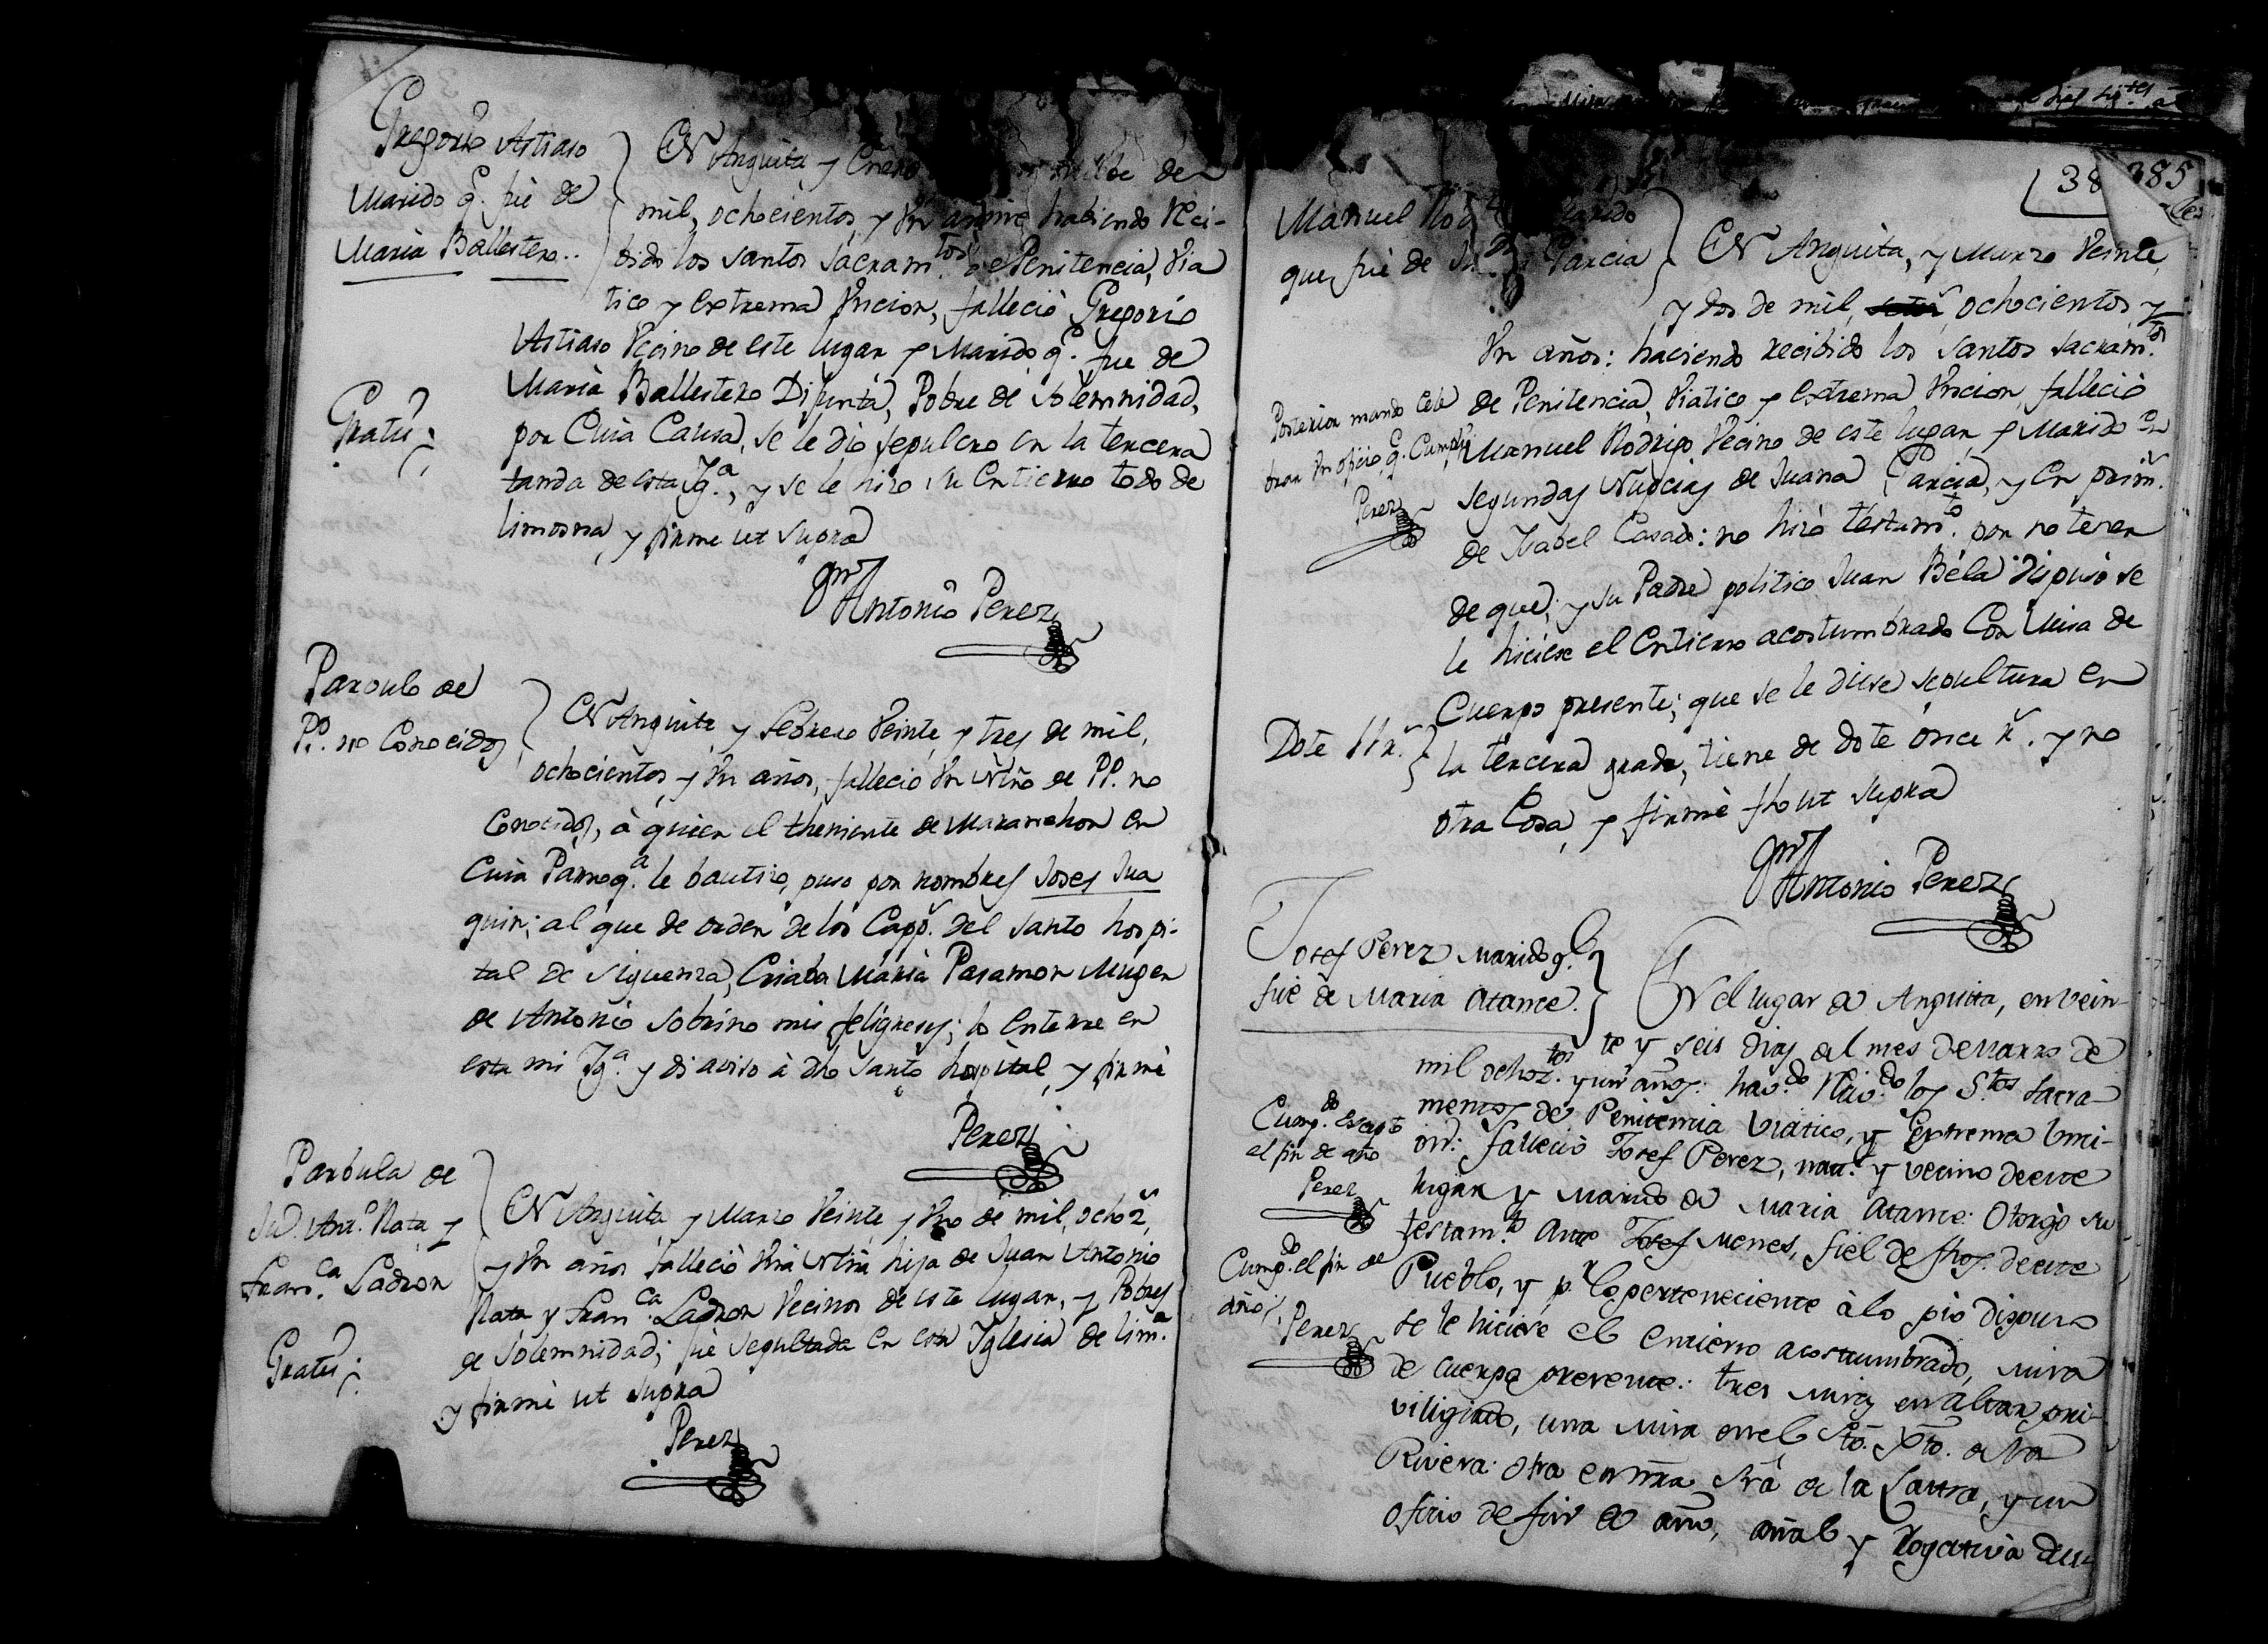 Gregorio Astiaso
Marido q.e fuè de
Maria Ballestero..
EN Anguita y Enero de
mil, ochocientos, y Un años habiendo Reci-
bido los santos sacram.tos de Penitencia, Via
tico y extrema Uncion, falleciò Gregorio
Astiaso Vecino de este lugar y Marido q.e fue de
Maria Ballestero Difunta, Pobre de solemnidad,
Gratis
por Cuia Causa, se le dio sepulcro en la tercera
tanda de esta Yg.a, y se le hizo su Entierro todo de
limosna, y firme ut supra
Antonio Perez
Parbulo de
PP. no Conocidos
EN Anguita y Febrero Veinte y tres de mil,
ochocientos, y Un años, falleciò Un Niño de PP. no
Conocidos, à quien el theniente de Maranchon en
Cuia Parroq.a le bautizo, puso por nombres Josef Jua
quin; al que de orden de los Capp.s del santo hospi-
tal de Siguenza, Criaba Maria Pasamon Muger
de Antonio Sobrino mis feligreses; lo enterre en
esta mi Yg.a y di aviso à dho santo hospital, y firmè
Perez
Parbula de
Ju.n Ant.o Rata y
Fran.ca Ladron
Gratis
EN Anguita y Marzo Veinte y Uno de mil, ochoz.s,
y Un años falleciò Una Niña hija de Juan Antonio
Rata y Fran.ca Ladron Vecinos de este lugar, y Pobres
de solemnidad; fuè sepultada en esta Yglesia de lim.a
y firmè ut supra
Perez
385
Manuel Rod Marido
que fuè de Ju.na Garcia
EN Anguita, y Marzo Veinte,
y dos de mil, ochocientos, y
Un años: haciendo recibido los santos sacram.tos
Posterior mando cele
brar Un oficio q.e Cumpli
Perez
de Penitencia, Viatico y extrema Uncion, falleciò
Manuel Rodrigo Vecino de este lugar y Marido en
segundas Nupcias de Juana Garcia, y en prim.s
de Ysabel Casado: no hizò testam.to por no tener
de que; y su Padre politico Juan Bela dispusò se
le hiciese el Entierro acostumbrado Con Misa de
Cuerpo presente; que se le diese sepultura en
Dote 11 r.s
la tercera grada, tiene de dote once r.s y no
otra Cosa, y firmè fho ut supra
Antonio Perez
Josef Perez Marido q.e
fuè de Maria Atance.
EN el lugar de Anguita, en vein-
te y seis dias del mes de Marzo de
mil ochoz.tos y un años: hav.do Reciv.do los S.tos Sacra-
mentos de Penitencia Viatico, y Extrema Unci-
on: falleciò Josef Perez, nat.l y vecino de este
lugar y Marido de Maria Atance: Otorgò su
testam.to ante Josef Menes, fiel de fhos. de este
Pueblo, y p.r lo perteneciente à lo pio dispuso
se le hiciese el entierro acostumbrado, misa
de cuerpo presente: tres misas en altar pri-
viligiado, una misa en el Sto. Xpto. de la
Rivera: otra en nra Sra de la Lastra, y un
oficio de fin de año, añal y rogativa de su
Cump.do excepto
el fin de año
Perez
Cump.do el fin de
año
Perez